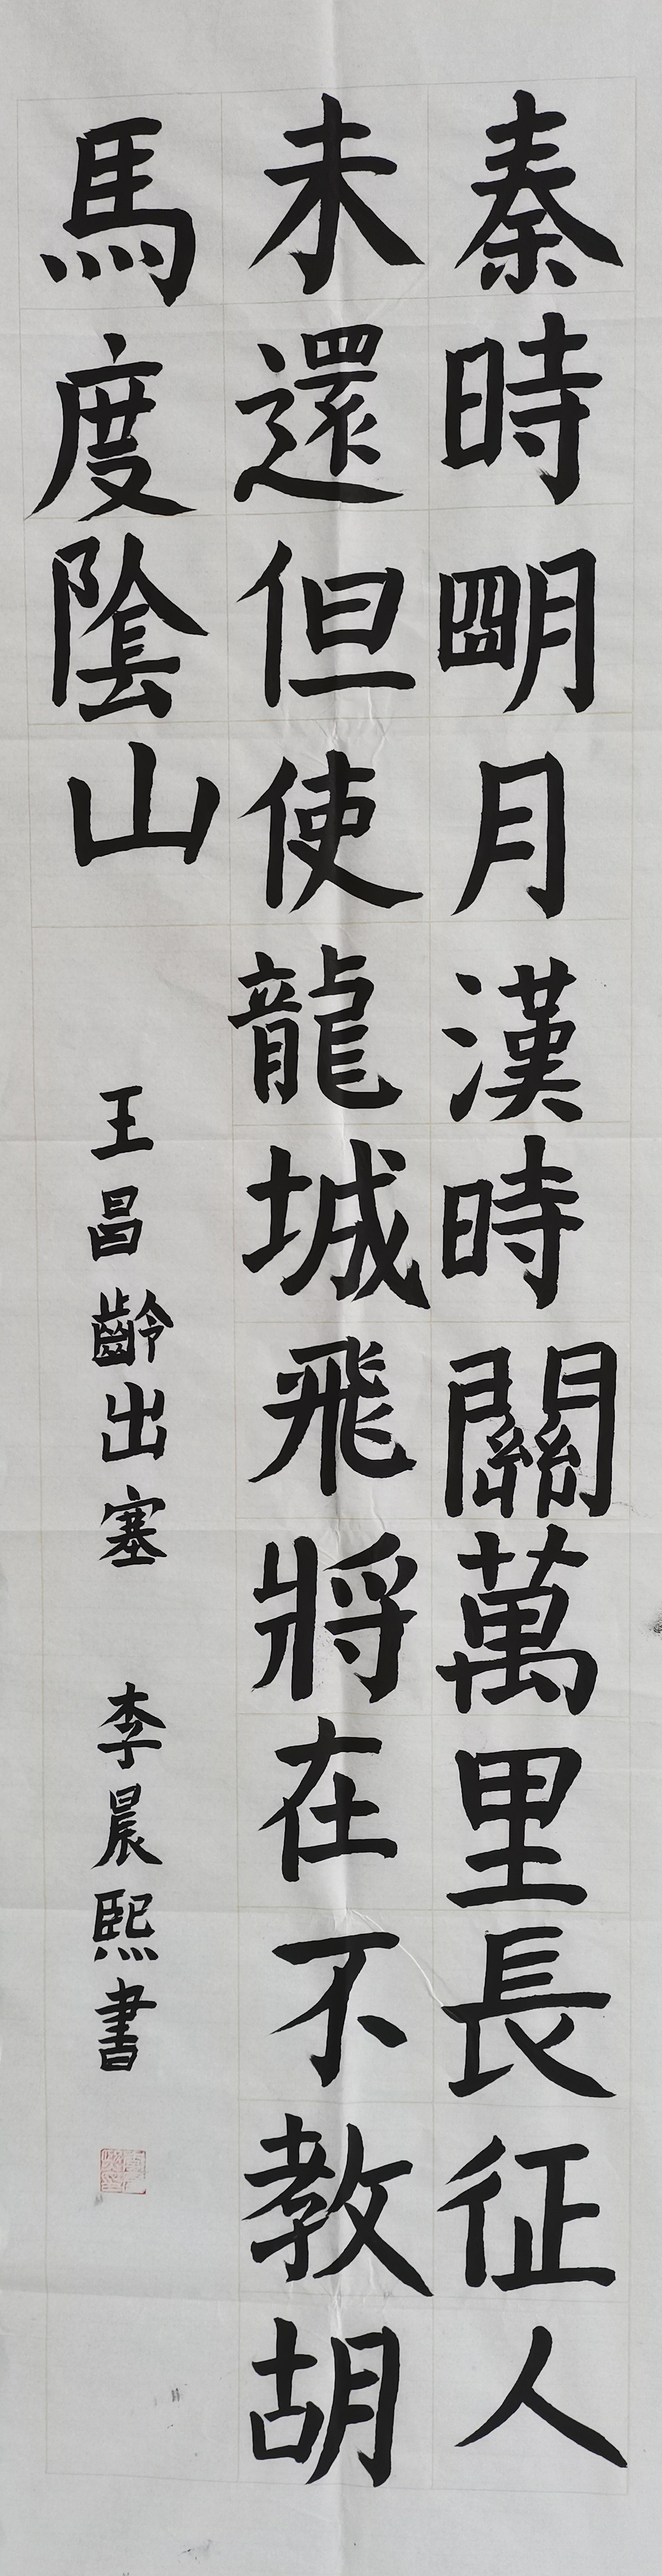 秦時朙月漢時關萬里長征人
未還但使龍城飛將在不教胡
馬度陰山
王昌齡出塞 李晨熙書